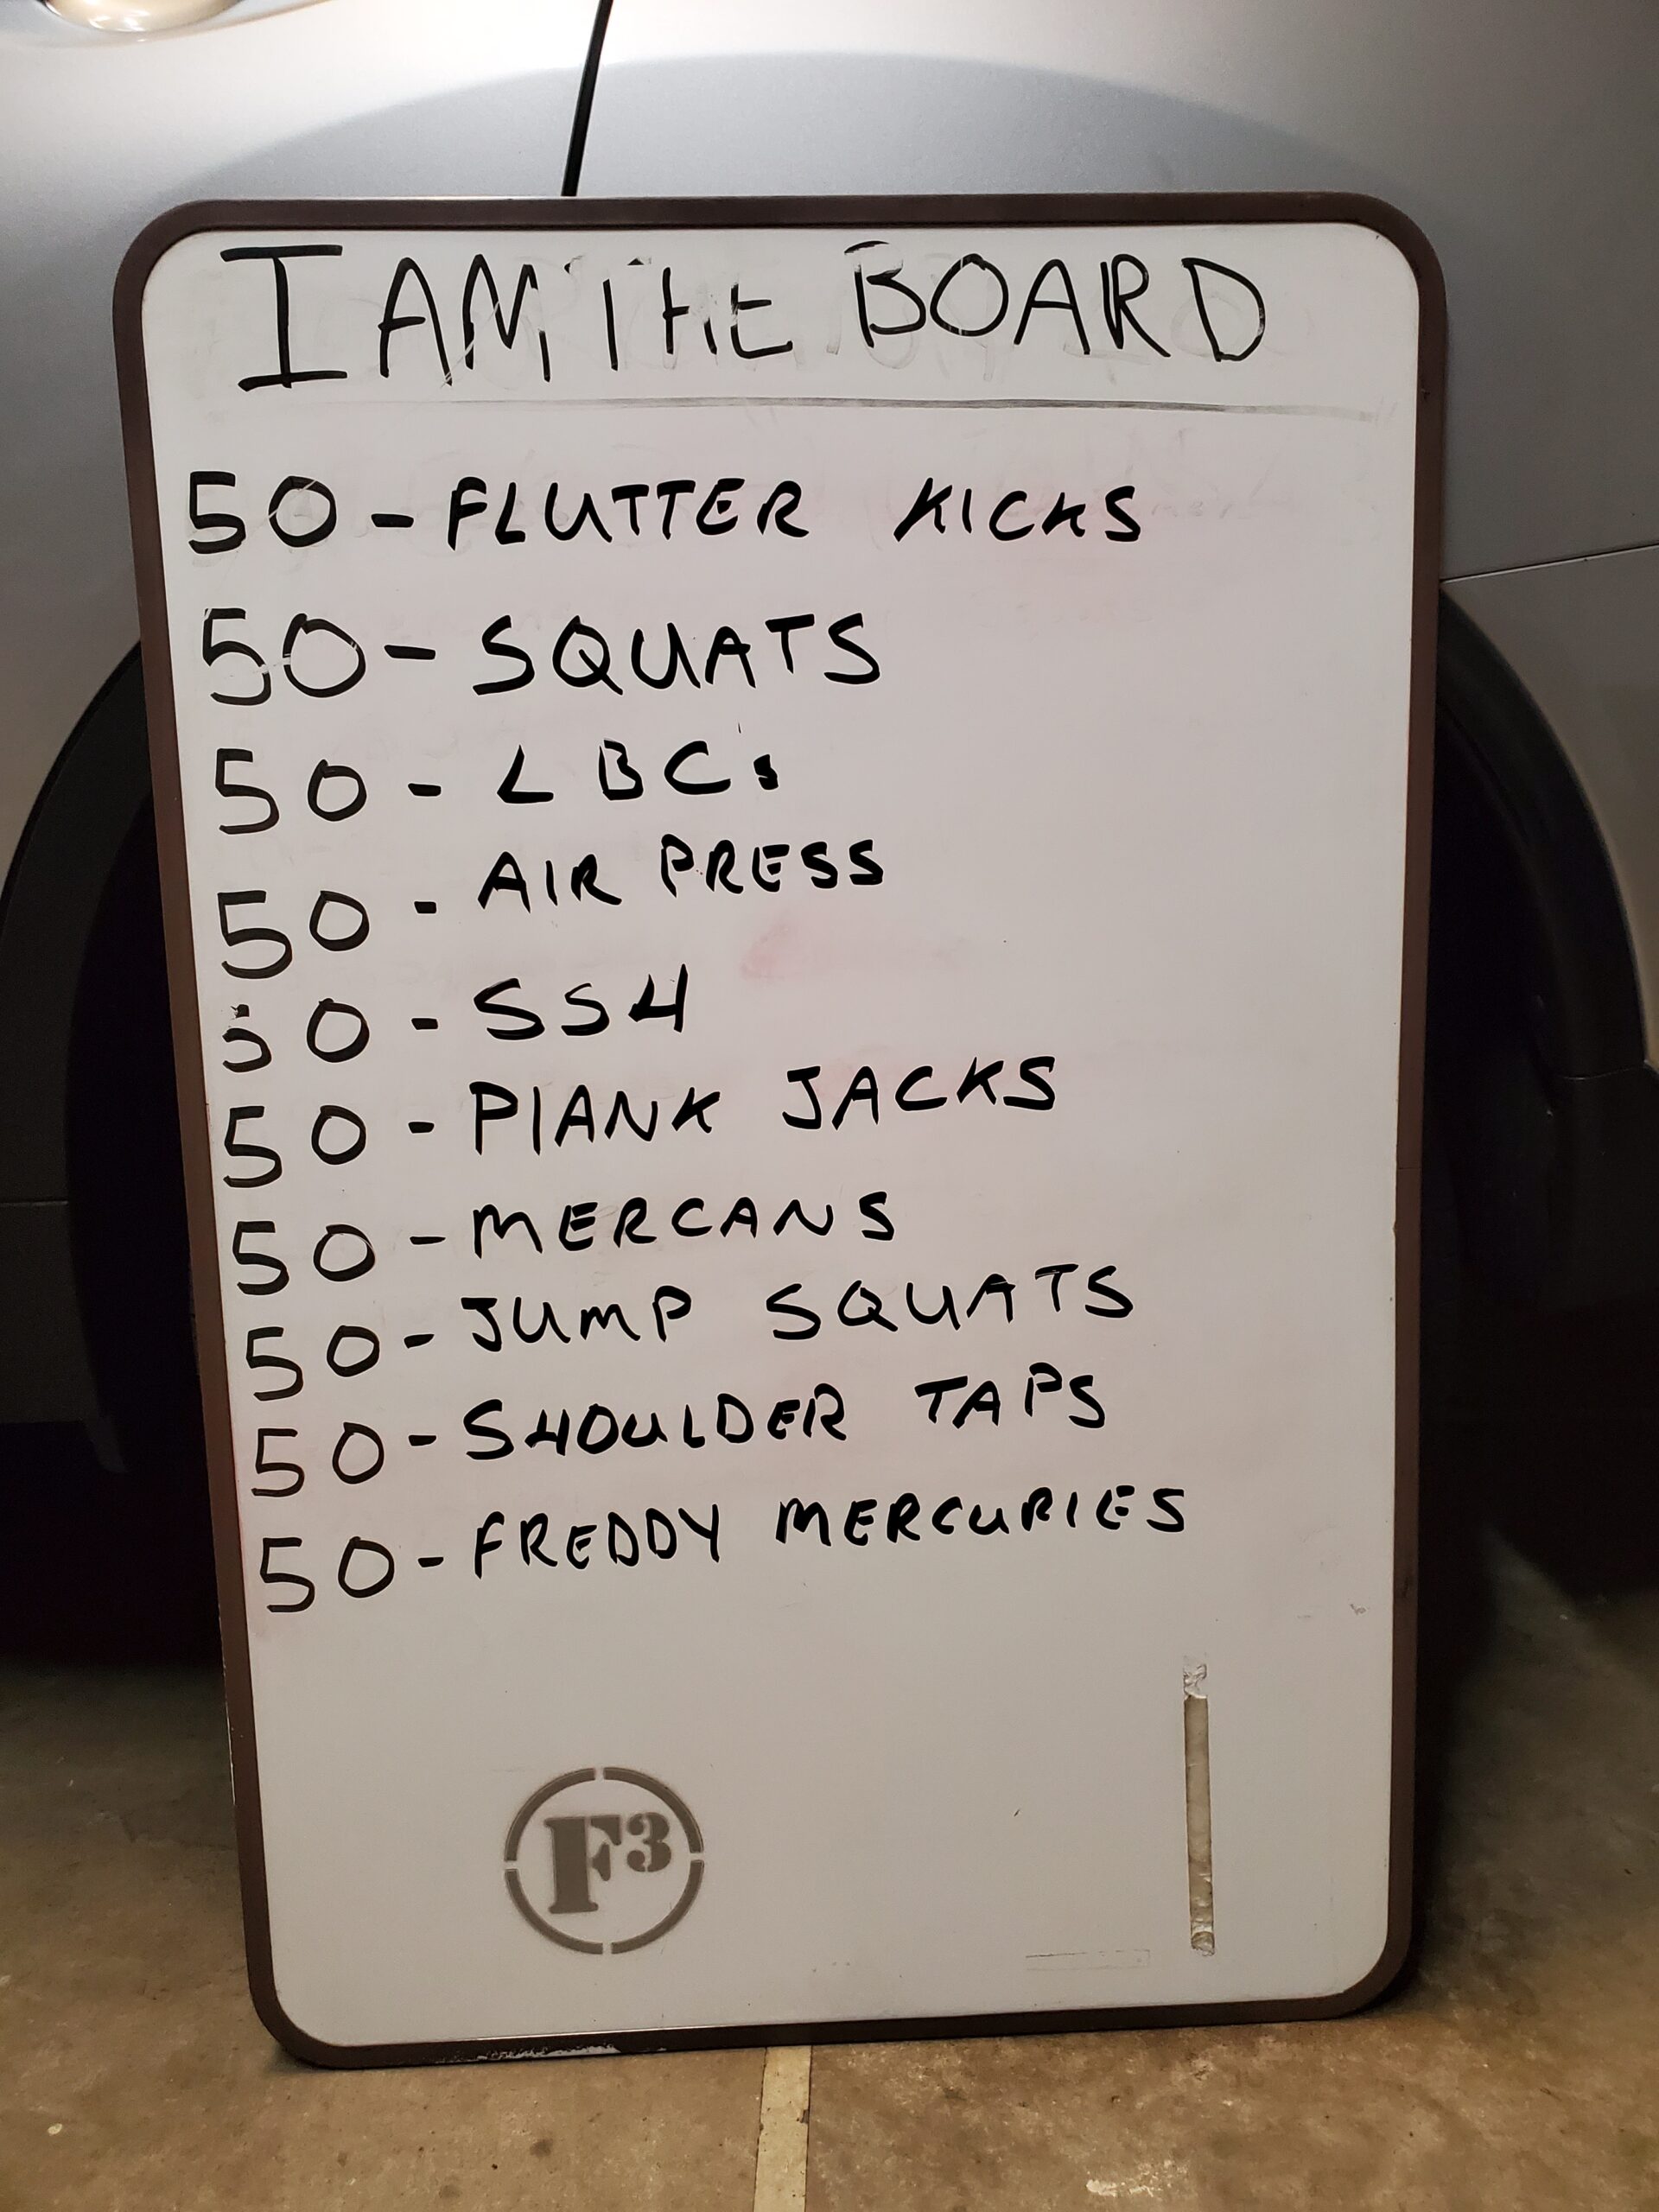 I AM THE BOARD
50 - FLUTTER KICKS
50 - SQUATS
50 - LBCs
50 - AIR PRESS
50 - SSH
50 - PlANK JACKS
50 - MERCANS
50 - JUMP SQUATS
50 - SHOULDER TAPS
50 - FREDDY MERCURIES
F3